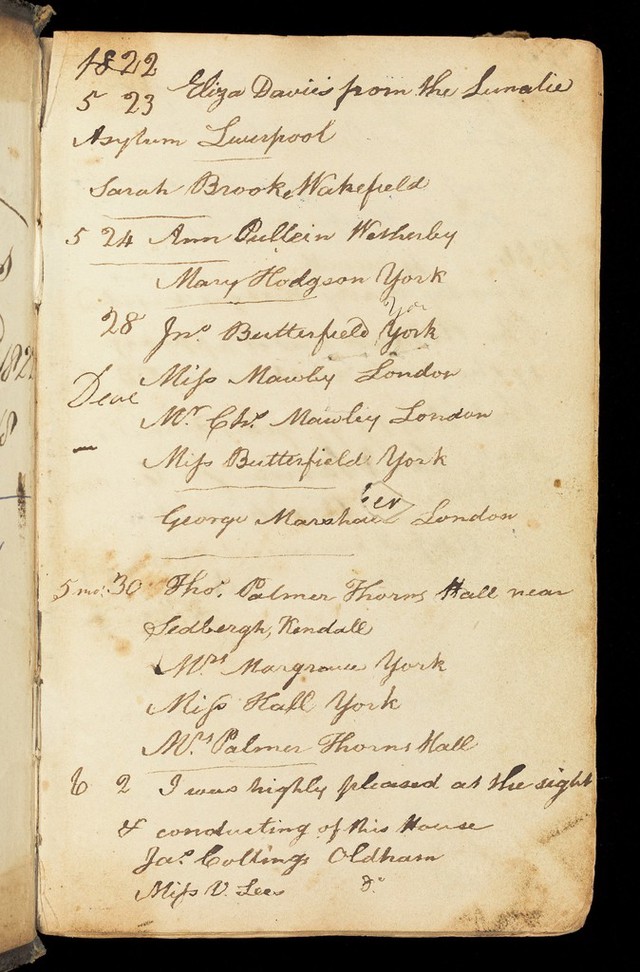 1822
5 23 Eliza Davies from the Lunatic
Asylum Liverpool
Sarah Brooke, Wakefield
5 24 Ann Pullein Wetherby
Mary Hodgson York
28 Jno. Butterfield, York
Miſs Mawley London
Mr. Chs. Mawley London
Miſs Butterfield York
George Marshall London
5 mo. 30 Thos. Palmer Thorns Hall near
Sedbergh, Kendall
Mrs Margrave York
Miſs Hall York
Mrs Palmer Thorns Hall
6 2 I was highly pleased at the sight
& conducting of this House
Jas. Collings Oldham
Miſs V. Lees Do